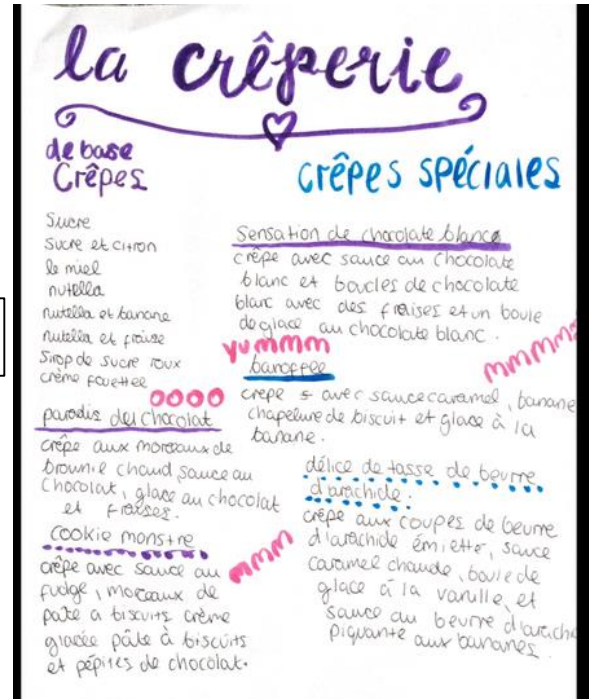 la crêperie
de base
Crêpes
Sucre
Sucre et citron
le miel
nutella
nutella et banane
nutella et fraise
Sirop de sucre roux
crème fouettee
oooo
paradis du chocolat
crêpe aux morceaux de
brownie chaud sauce au
chocolat, glace au chocolat
et fraises.
cookie monstre
mmm
crêpe avec sauce au
fudge, morceaux de
pate a biscuits crème
glacée pâte à biscuits
et pépites de chocolat.
crêpes spéciales
Sensation de chocolate blanco
crêpe avec sauce au chocolate
blanc et boucles de chocolate
blanc avec des fraises et un boule
de glace au chocolate blanc.
yummm
mmmm
banoffee
crepe avec sauce caramel, banane
chapelure de biscuit et glace à la
banane.
délice de tasse de beurre
d'arachide.
crêpe aux coupes de beurre
d'arachide émietté, sauce
caramel chaude, boule de
glace à la vanille, et
sauce au beurre d'arach
piquante aux bananes.